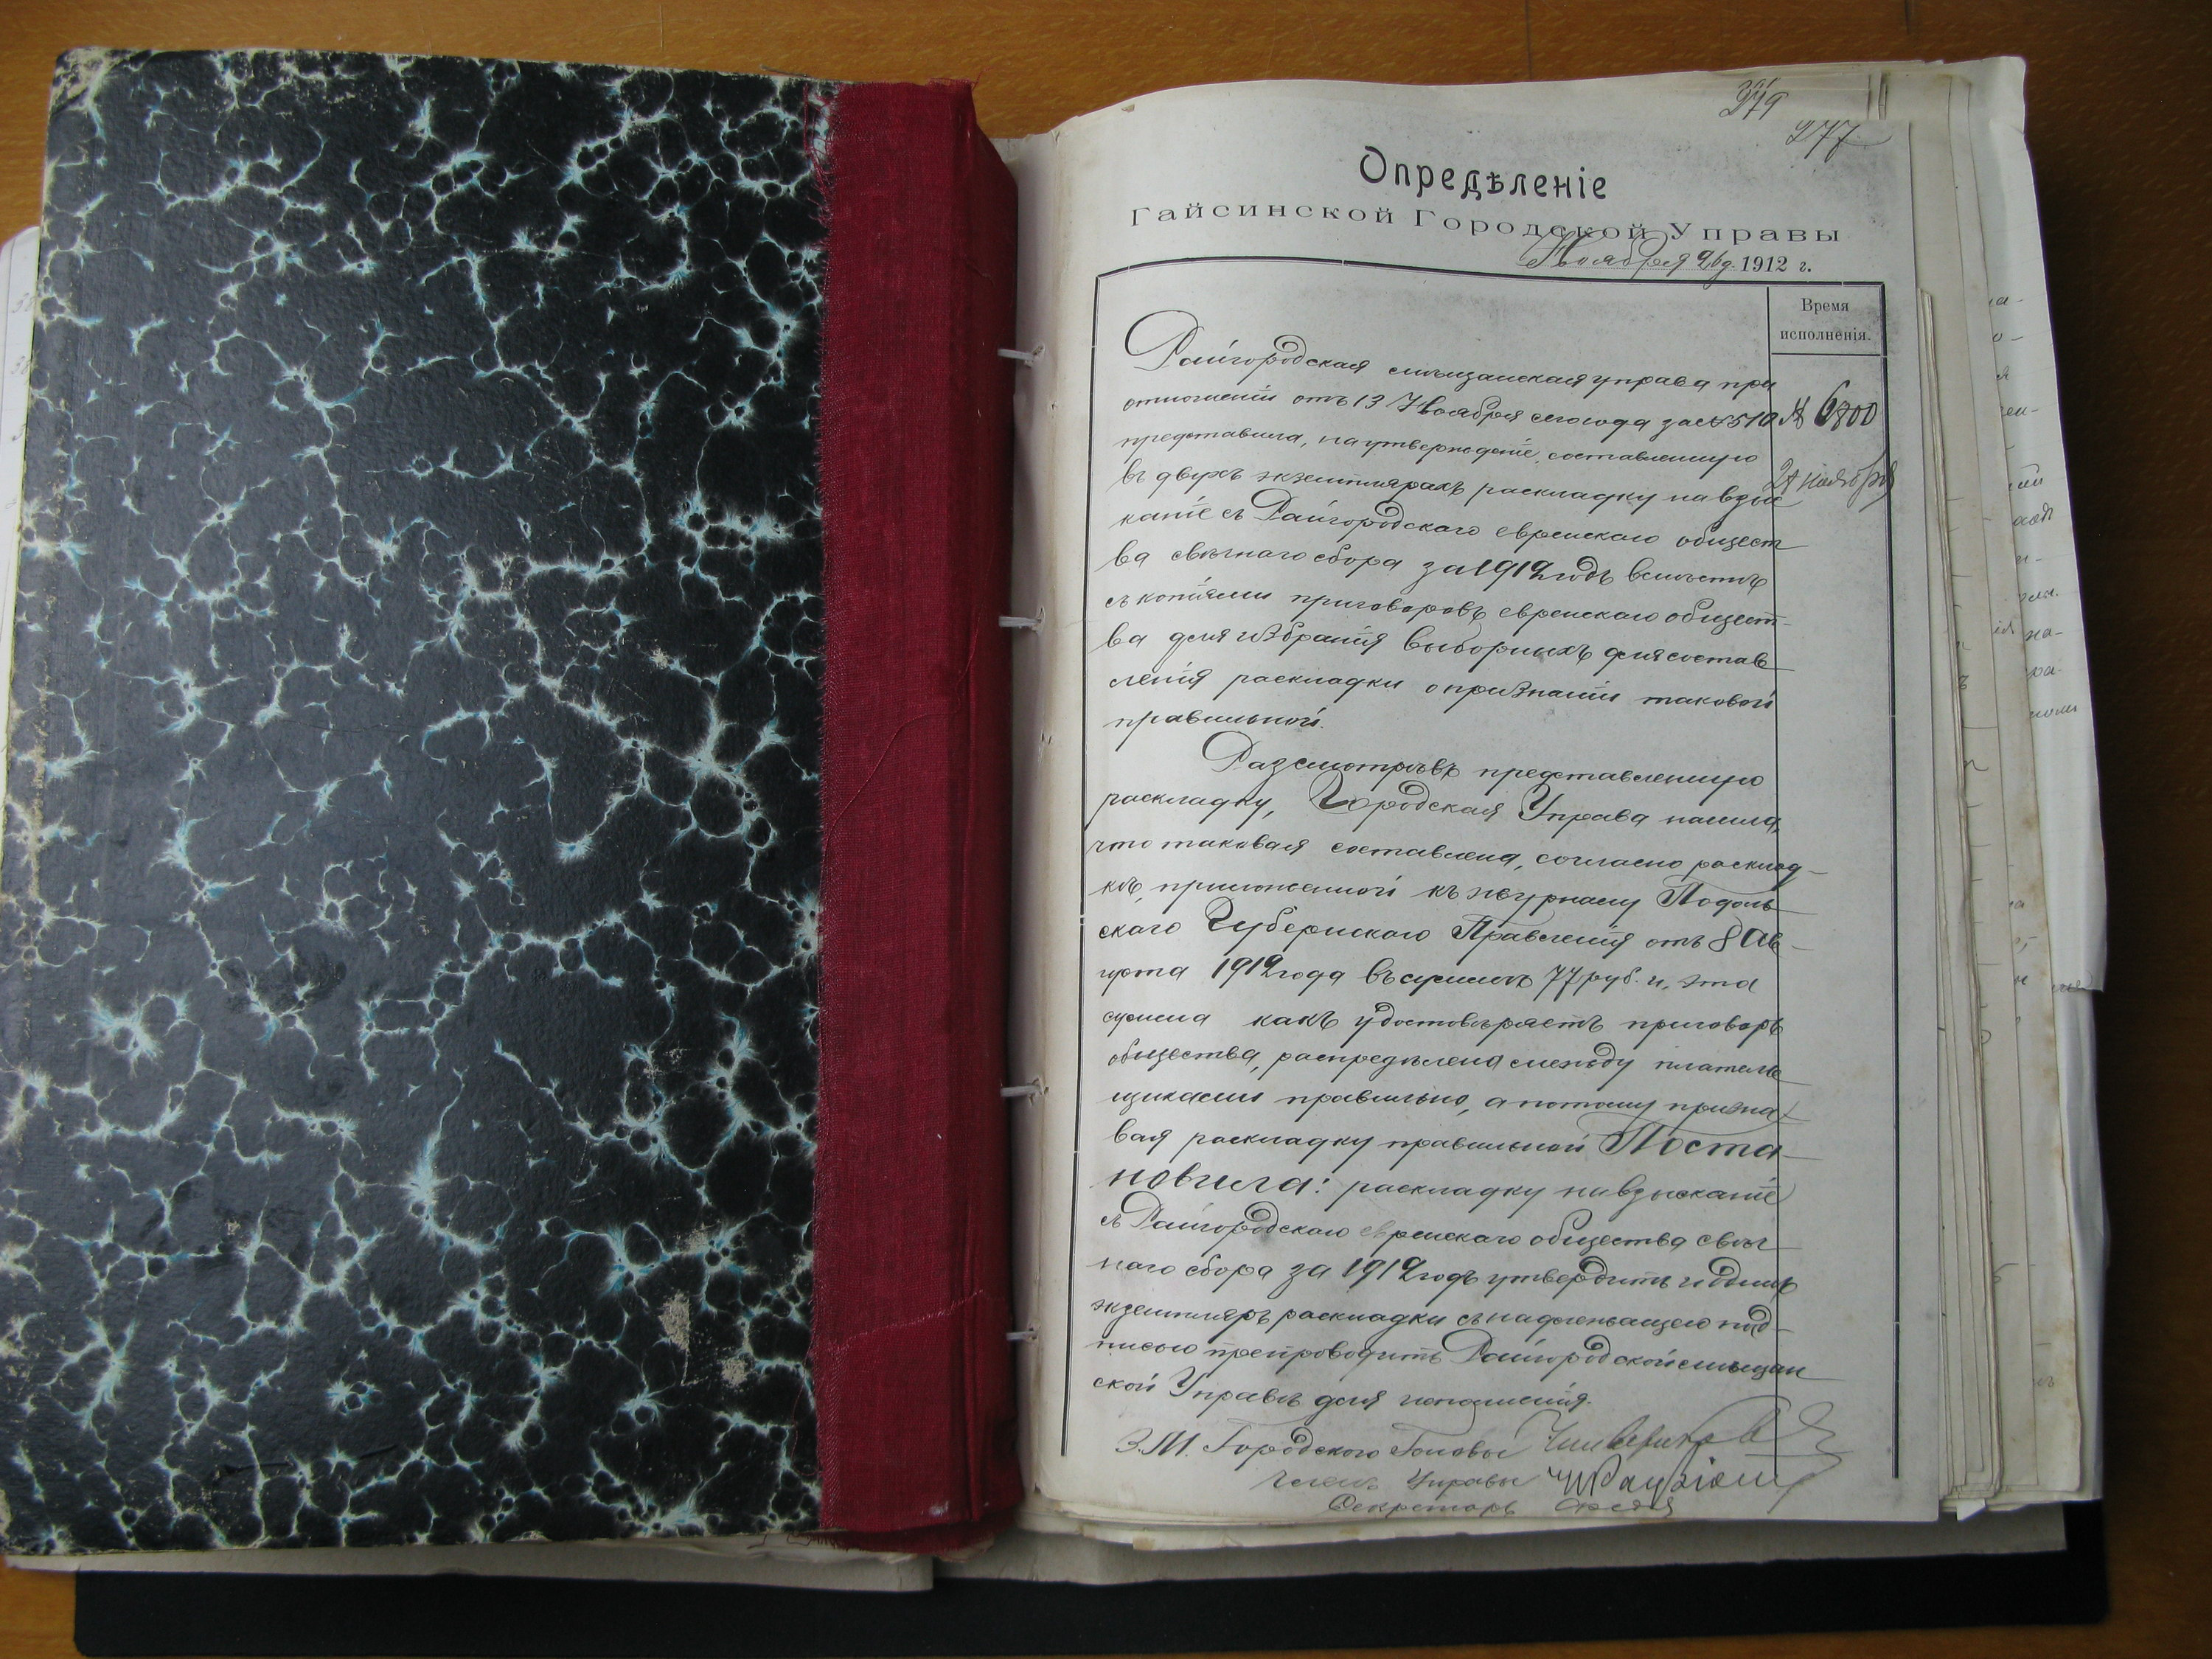 379
277
Опредѣленіе
Гайсинской Городской Управы
Ноября 26 д. 1912 г.
Время
исполненія.
Райгородская мѣщанская управа при
отношеніи отъ 13 Ноября сего года за № 510
№ 6800
представила, на утвержденіе, составленную
въ двухъ экземплярахъ раскладку на взыс
27 ноября
каніе съ Райгородскаго еврейскаго общест
ва свѣчнаго сбора за 1912 годъ вмѣстѣ
съ копіями приговоровъ еврейскаго общест-
ва для избранія выборныхъ для состав
ленія раскладки о признаніи таковой
правильной.
Разсмотрѣвъ представленную
раскладку, Городская Управа нашла,
что таковая составлена, согласно расклад-
кѣ, приложенной къ журналу Подоль
скаго Губернскаго Правленія отъ 8 Ав-
густа 1912 года въ суммѣ 77 руб. и, эта
сумма какъ удостовѣряетъ приговоръ
общества, распредѣлена между платель
щиками правильно, а потому призна
вая раскладку правильной Поста-
новила: раскладку на взысканіе
съ Райгородскаго еврейскаго общества свѣч
наго сбора за 1912 годъ утвердить и одинъ
экземпляръ раскладки съ надлежащею над-
писью препроводить Райгородской мѣщан
ской Управѣ для исполненія.
З.М. Городского Головы
Членъ Управы
Секретарь